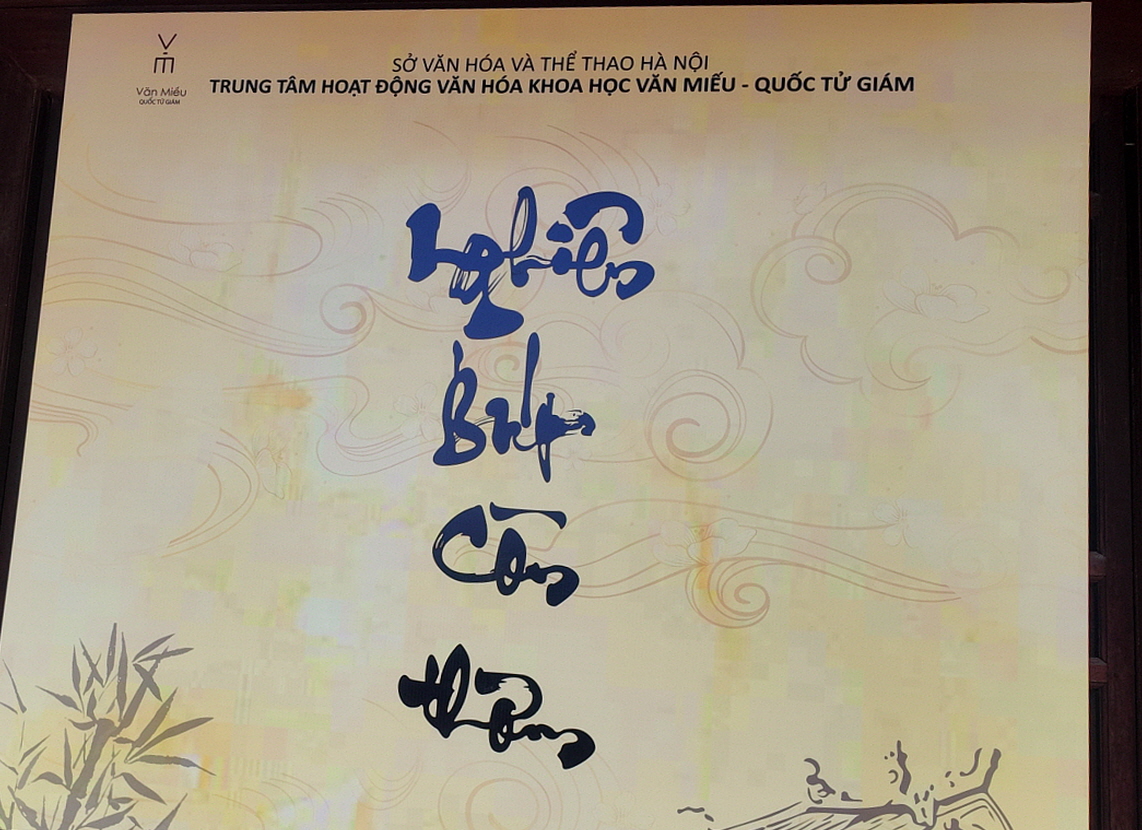 Văn Miếu
QUỐC TỬ GIÁM
SỞ VĂN HÓA VÀ THỂ THAO HÀ NỘI
TRUNG TÂM HOẠT ĐỘNG VĂN HÓA KHOA HỌC VĂN MIẾU - QUỐC TỬ GIÁM
Nghiên
Bút
Còn
thơm